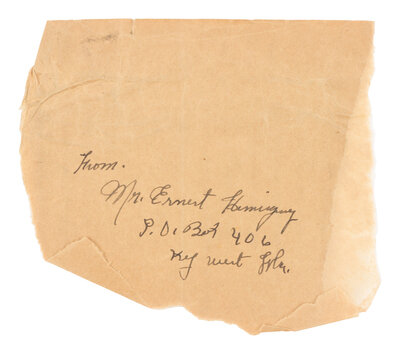 From.
Mr. Ernest Hemingway
P.O. Box 406
Key West Fla.